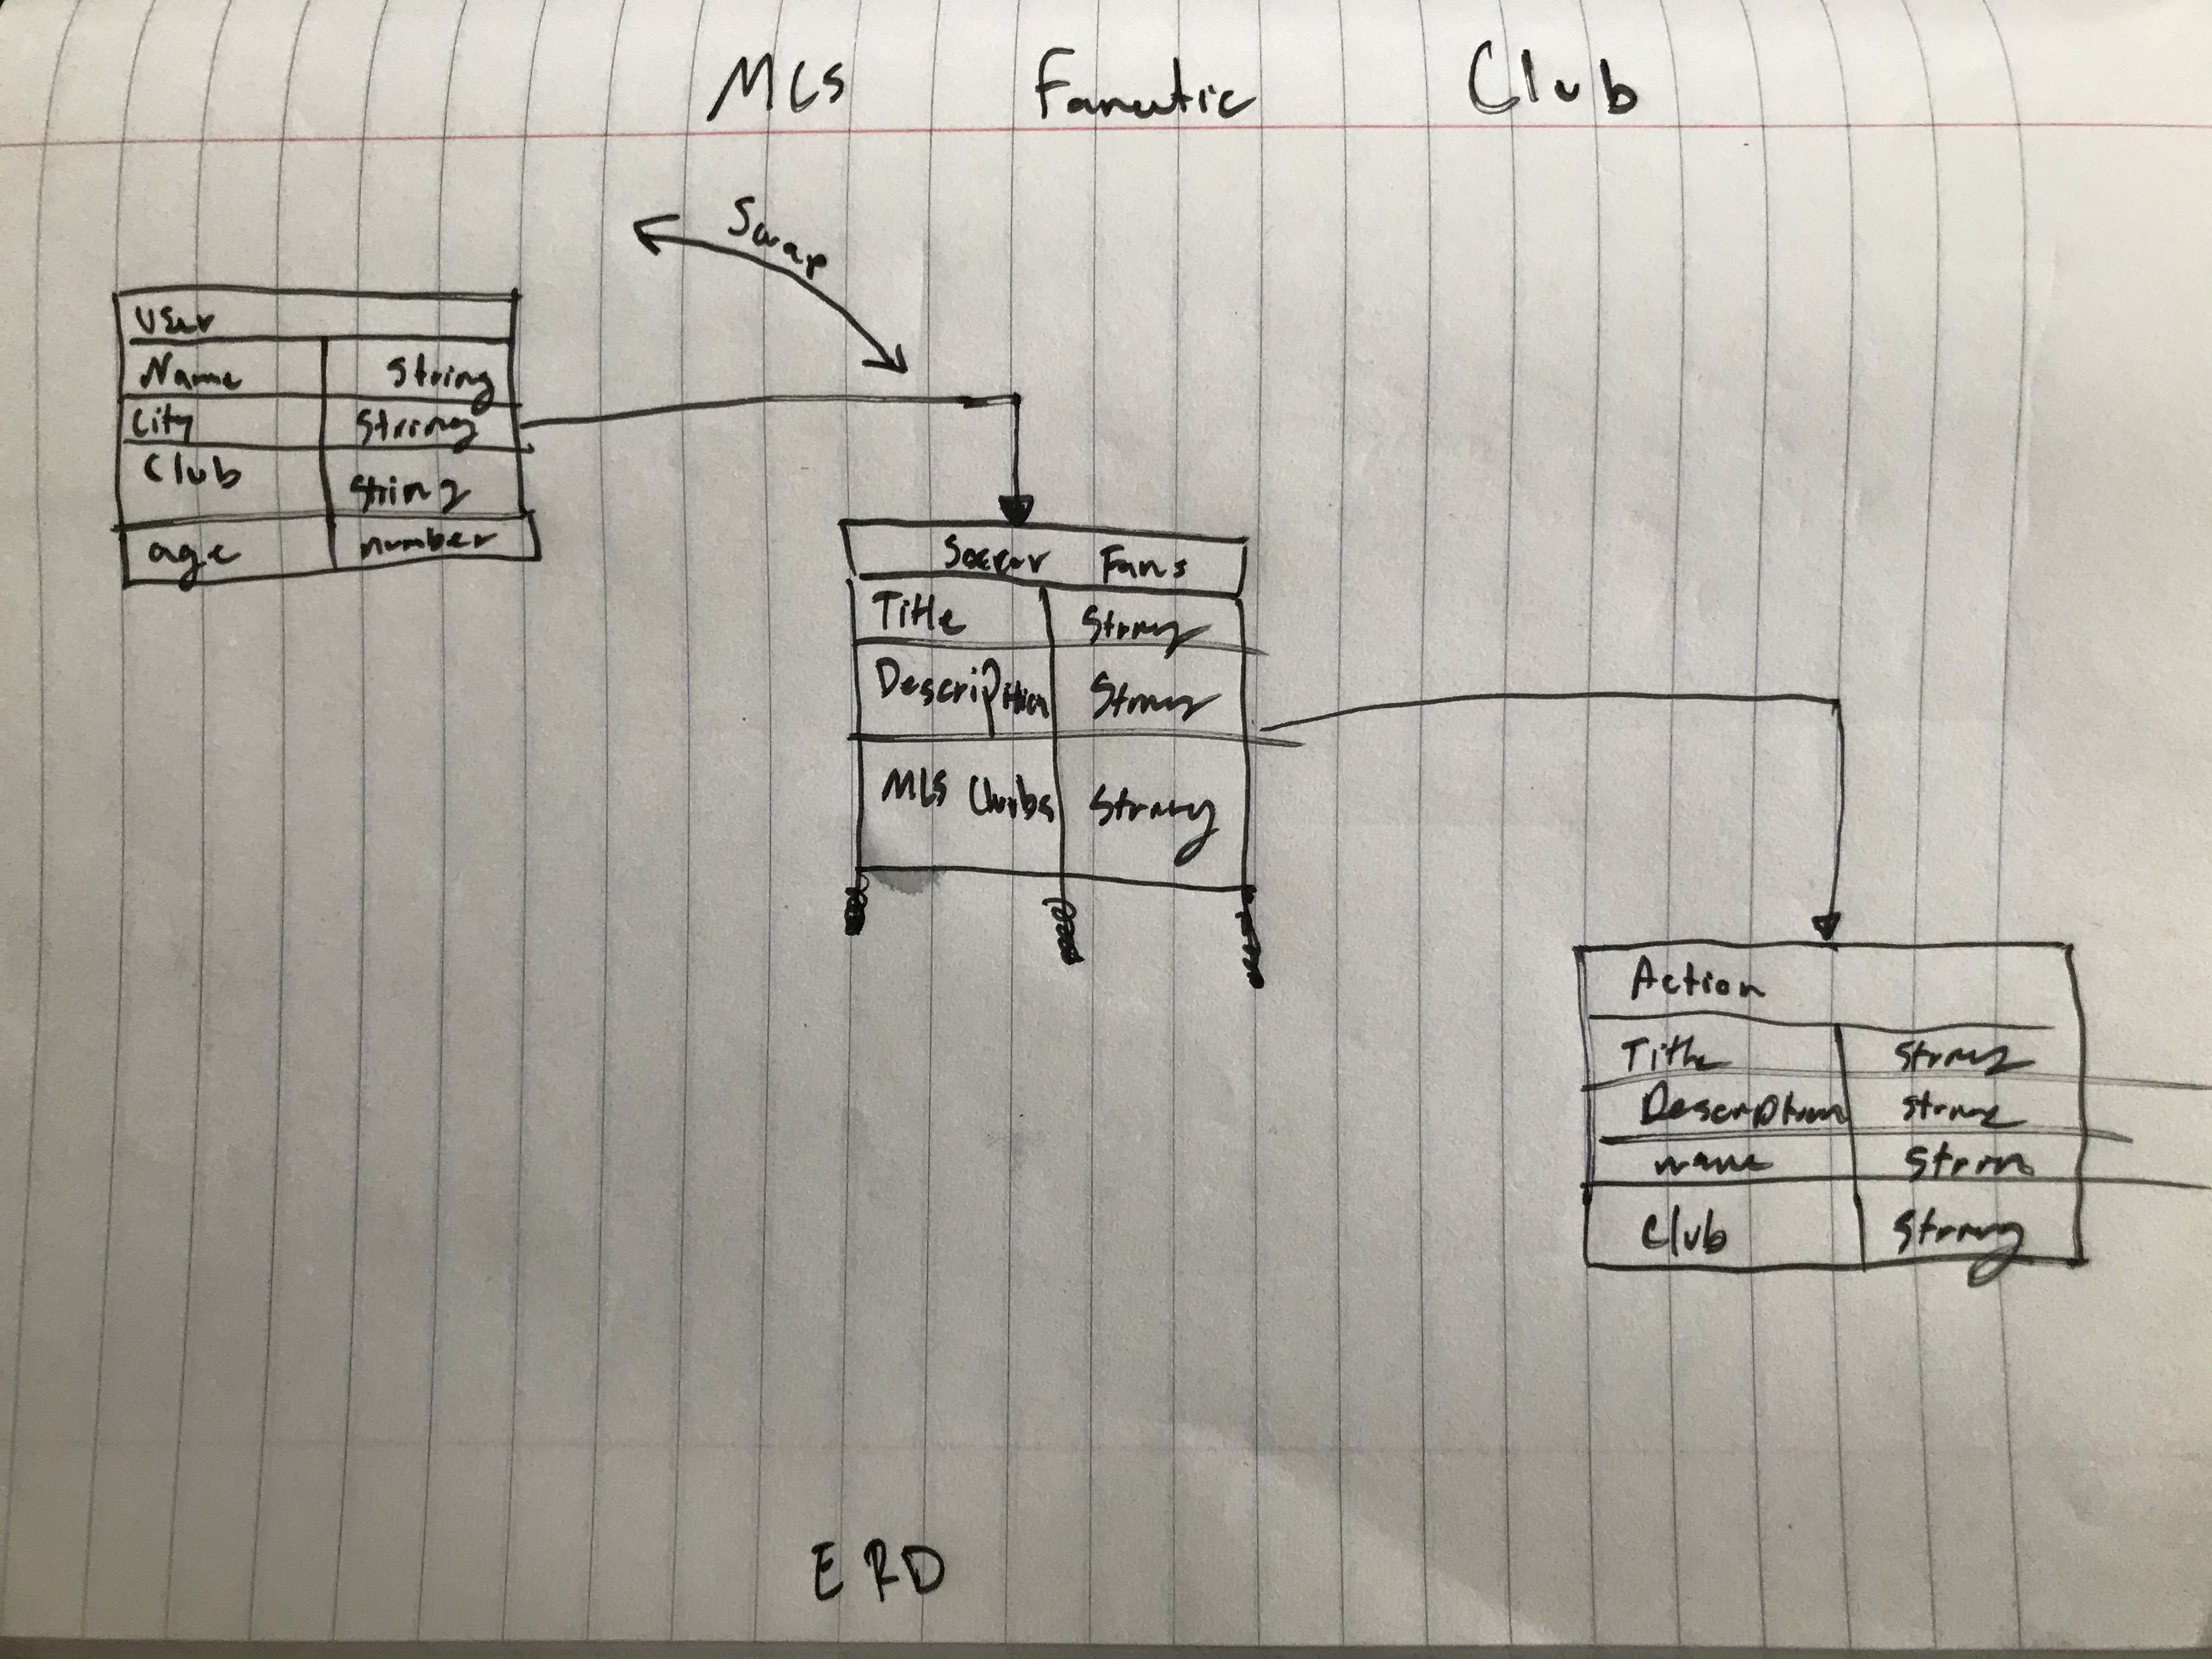 MLS Fanatic Club
Swap
User
Name String
City String
Club String
age number
Soccer Fans
Title String
Description String
MLS Clubs String
Action
Title String
Description String
name Strin
Club String
ERD